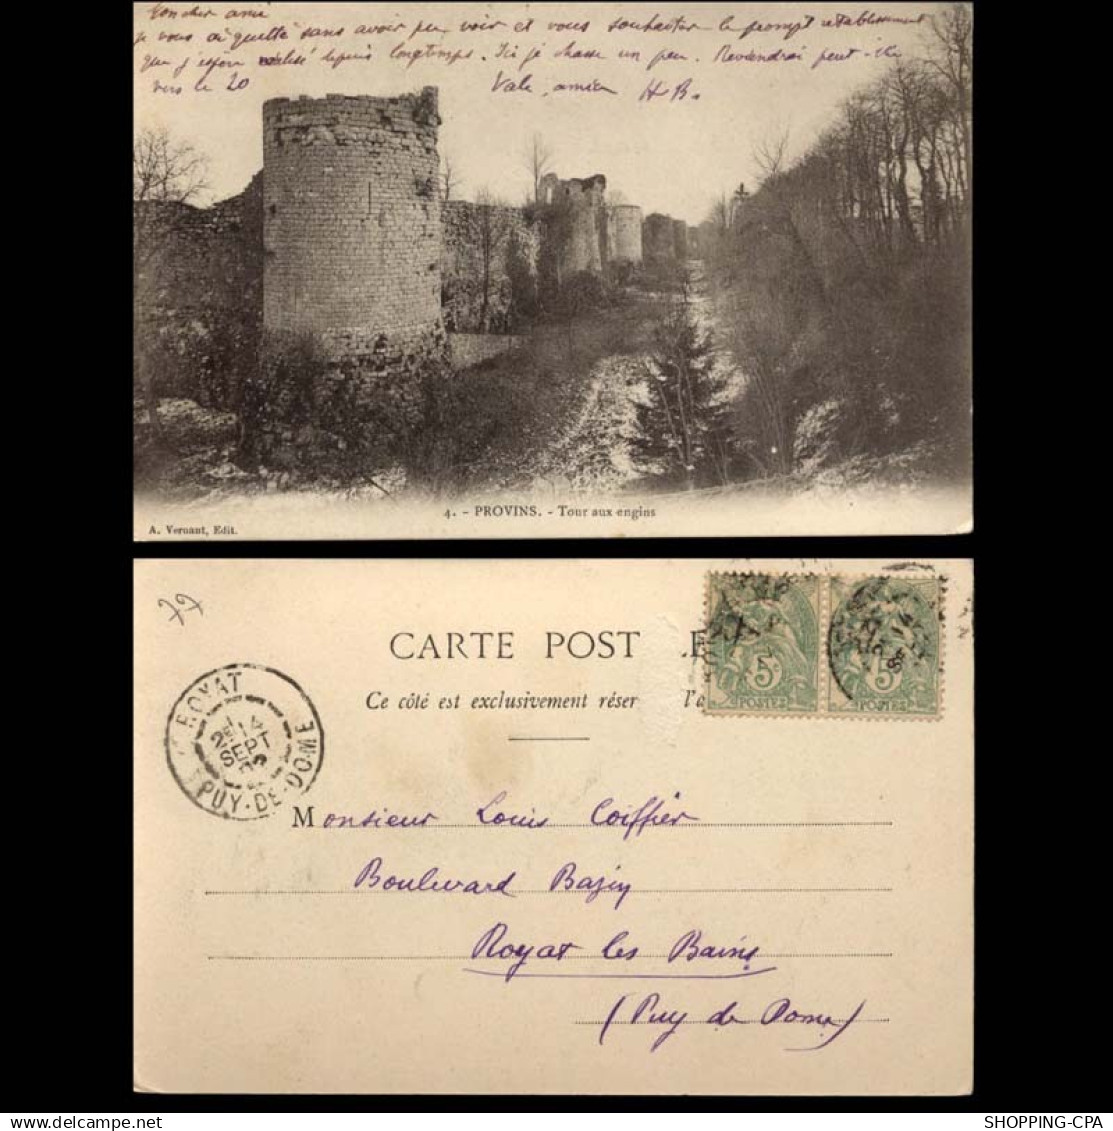 Mon cher ami
je vous ai quitté sans avoir pu voir et vous souhaiter le prompt rétablissement
que j'espère réalisé depuis longtemps. Ici je chasse un peu. Reviendrai peut-être
vers le 20 Vale, amice H B.
4. - PROVINS. - Tour aux engins
A. Vernant, Edit.
77
CARTE POST LE
Ce côté est exclusivement réser l'a
5 5
POSTES POSTES
ROYAT
14
SEPT
PUY-DE-DOME
Monsieur Louis Coiffier
Boulevard Bazin
Royat les Bains
(Puy de Dome)
SHOPPING-CPA